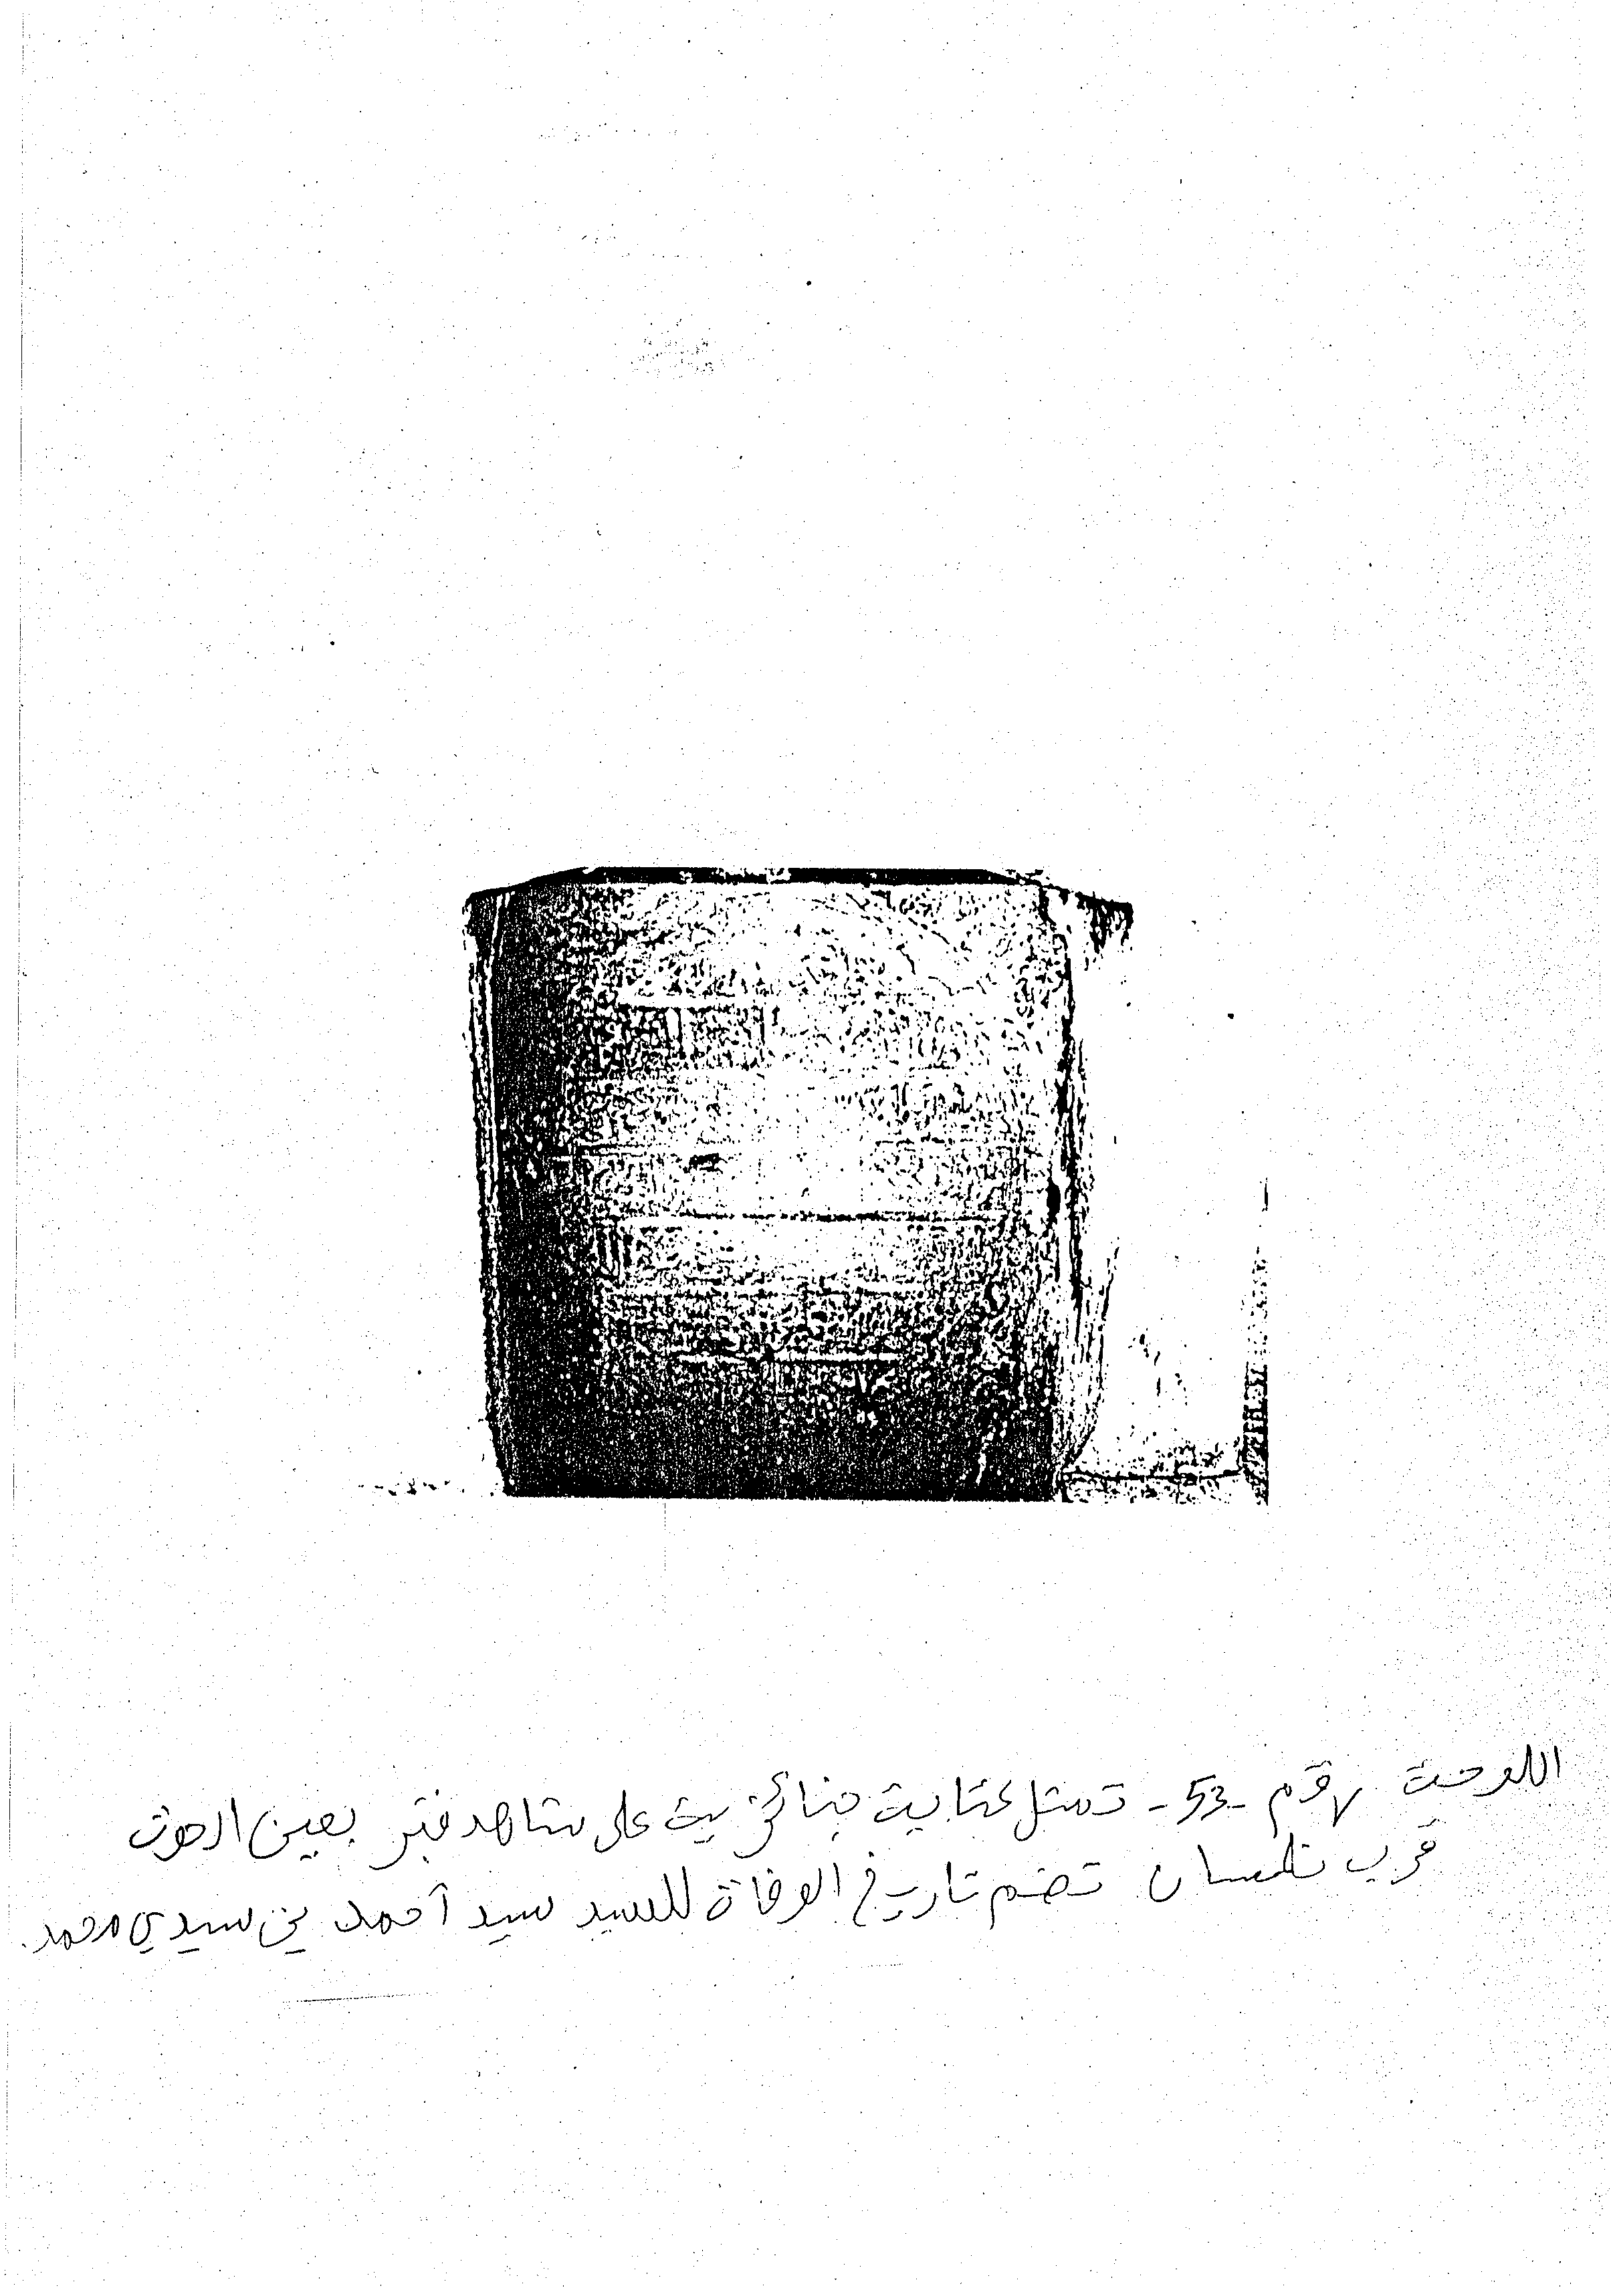 اللوحة رقم -53- تمثل كتابة جنائزية على شاهد قبر بعين الحوت
قرب تلمسان تضم تاريخ الوفاة للسيد سيد أحمد بن سيدي محمد.